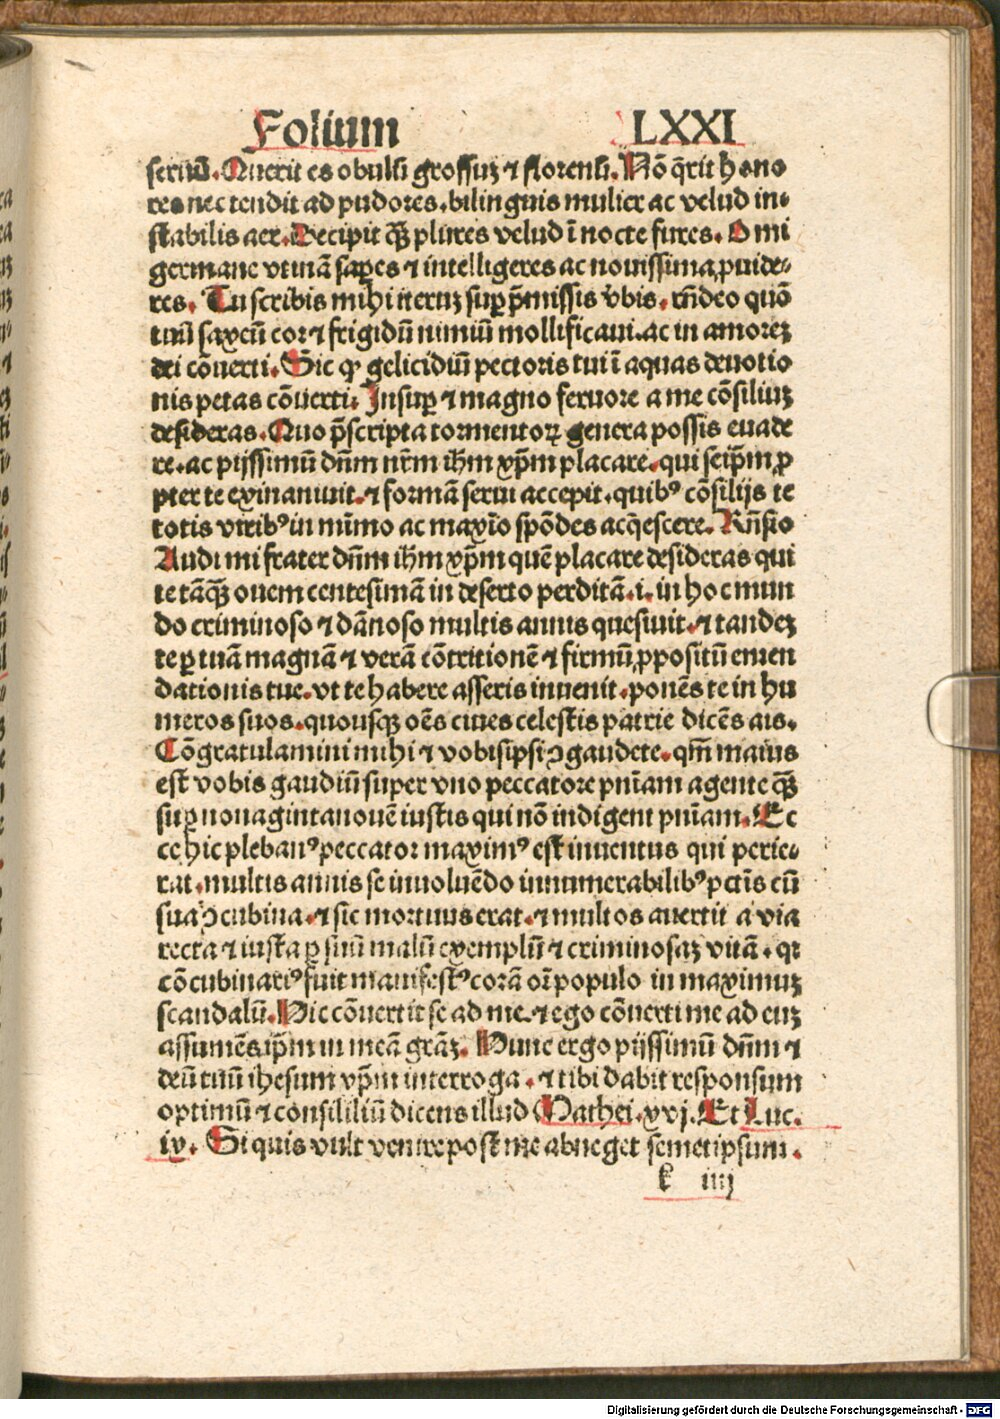 Folium LXXI
seriū. Querit es obulsi grossuꝫ ⁊ florensi. Nō q̄rit hono
res nec tendit ad pudores. bilinguis mulier ac velud in⸗
stabilis aer. Decipit qꝫ̄ plures velud ī nocte fures. O mi
germane vtinā saꝑes ⁊ intelligeres ac nouissima ꝓuide⸗
res. Tu scribis mihi iteruꝫ suꝑ p̄missis v̄bis. rn̄deo quō
tuū saxeū cor ⁊ frigidū nimiū mollificaui. ac in amoreꝫ
dei cōuerti. Sic ꝙ gelicidiū pectoris tui ī aquas deuotio
nis petas cōuerti. Insuꝑ ⁊ magno feruore a me cōsiliuꝫ
desideras. Quo p̄scripta tormentoꝝ genera possis euade
re. ac pijssimū dn̄m nr̄m ih̄m xp̄m placare. qui seip̄m ꝓ
pter te exinanuit. ⁊ formā serui accepit. quibꝰ cōsilijs te
totis viribꝰ in mīmo ac maxīo spōdes acq̄escere. Rn̄sio
Audi mi frater dn̄m ih̄m xp̄m quē placare desideras qui
te tāqꝫ̄ ouem centesimā in deserto perditā. i. in hoc mun
do criminoso ⁊ dānoso multis annis quesiuit. ⁊ tandeꝫ
te ꝑ tuā magnā ⁊ verā cōtritionē ⁊ firmū ꝓpositū emen
dationis tue. vt te habere asseris inuenit. ponēs te in hu
meros suos. quousqꝫ oēs ciues celestis patrie dicēs ais.
Cōgratulamini mihi ⁊ vobisipsi ꝯgaudete. qm̄ maius
est vobis gaudiū super vno peccatore pn̄iam agente qꝫ̄
suꝑ nonagintanouē iustis qui nō indigent pn̄iam. Ec
ce hic plebanꝰ peccator maximꝰ est inuentus qui perie⸗
rat. multis annis se inuoluēdo innumerabilibꝰ pctīs cū
sua ꝯcubina. ⁊ sic mortuus erat. ⁊ multos auertit a via
recta ⁊ iusta ꝑ suū malū exemplū ⁊ criminosaꝫ vitā. qꝛ
cōcubinariꝰ fuit manifestꝰ corā oī populo in maximuꝫ
scandalū. Hic cōuertit se ad me. ⁊ ego cōuerti me ad euꝫ
assumēs ip̄m in meā grāꝫ. Hunc ergo pijssimū dn̄m ⁊
deū tuū ihesum xp̄m interroga. ⁊ tibi dabit responsum
optimū ⁊ consililiū dicens illud Mathei. xvj. Et Luc.
ix. Si quis vult venire post me abneget semetipsum.
k iiij
Digitalisierung gefördert durch die Deutsche Forschungsgemeinschaft - DFG